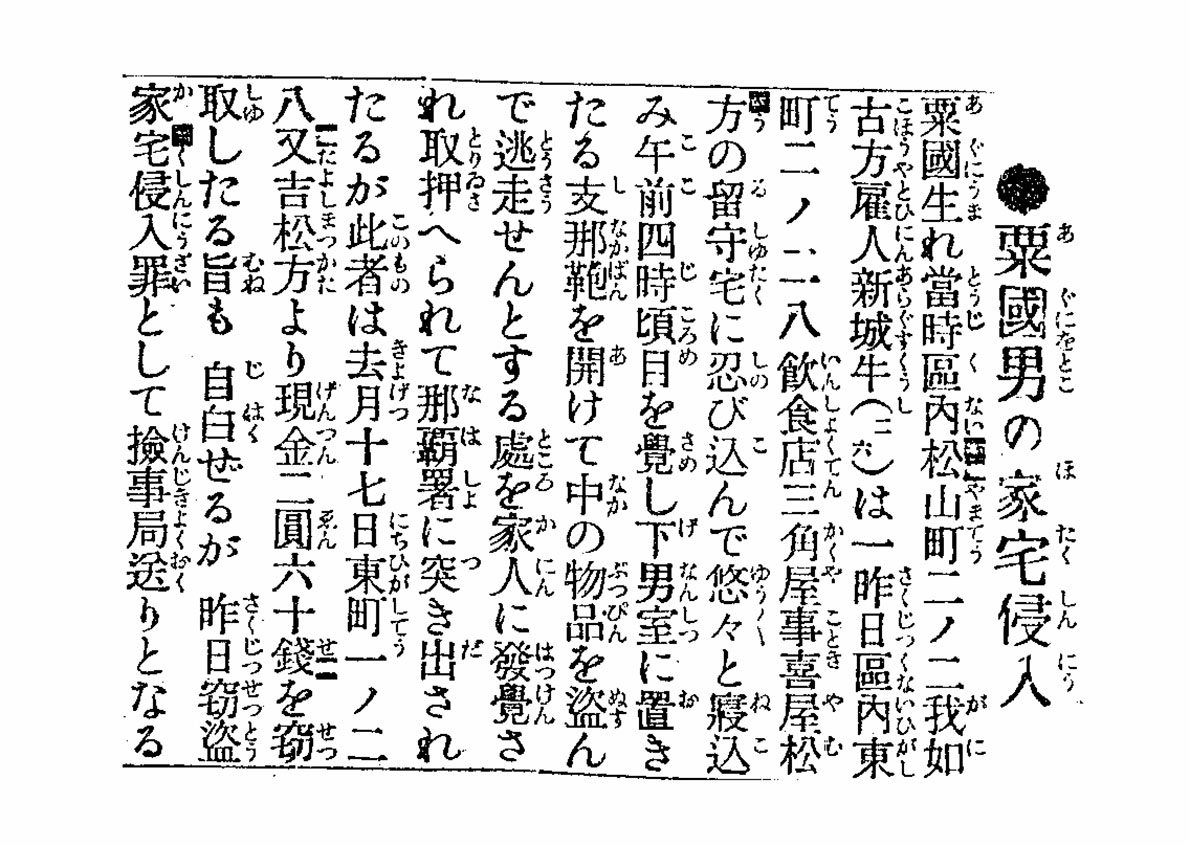 ●粟國男の家宅侵入
粟國生れ當時區內松山町二ノ二我如
古方雇人新城牛(二六)は一昨日區內東
町二ノ二八飮食店三角屋事喜屋松
方の留守宅に忍び込んで悠々と寢込
み午前四時頃目を覺し下男室に置き
たる支那鞄を開けて中の物品を盜ん
で逃走せんとする處を家人に發覺さ
れ取押へられて那覇署に突き出され
たるが此者は去月十七日東町一ノ二
八又吉松方より現金二圓六十錢を窃
取したる旨も自白せるが昨日窃盜
家宅侵入罪として撿事局送りとなる